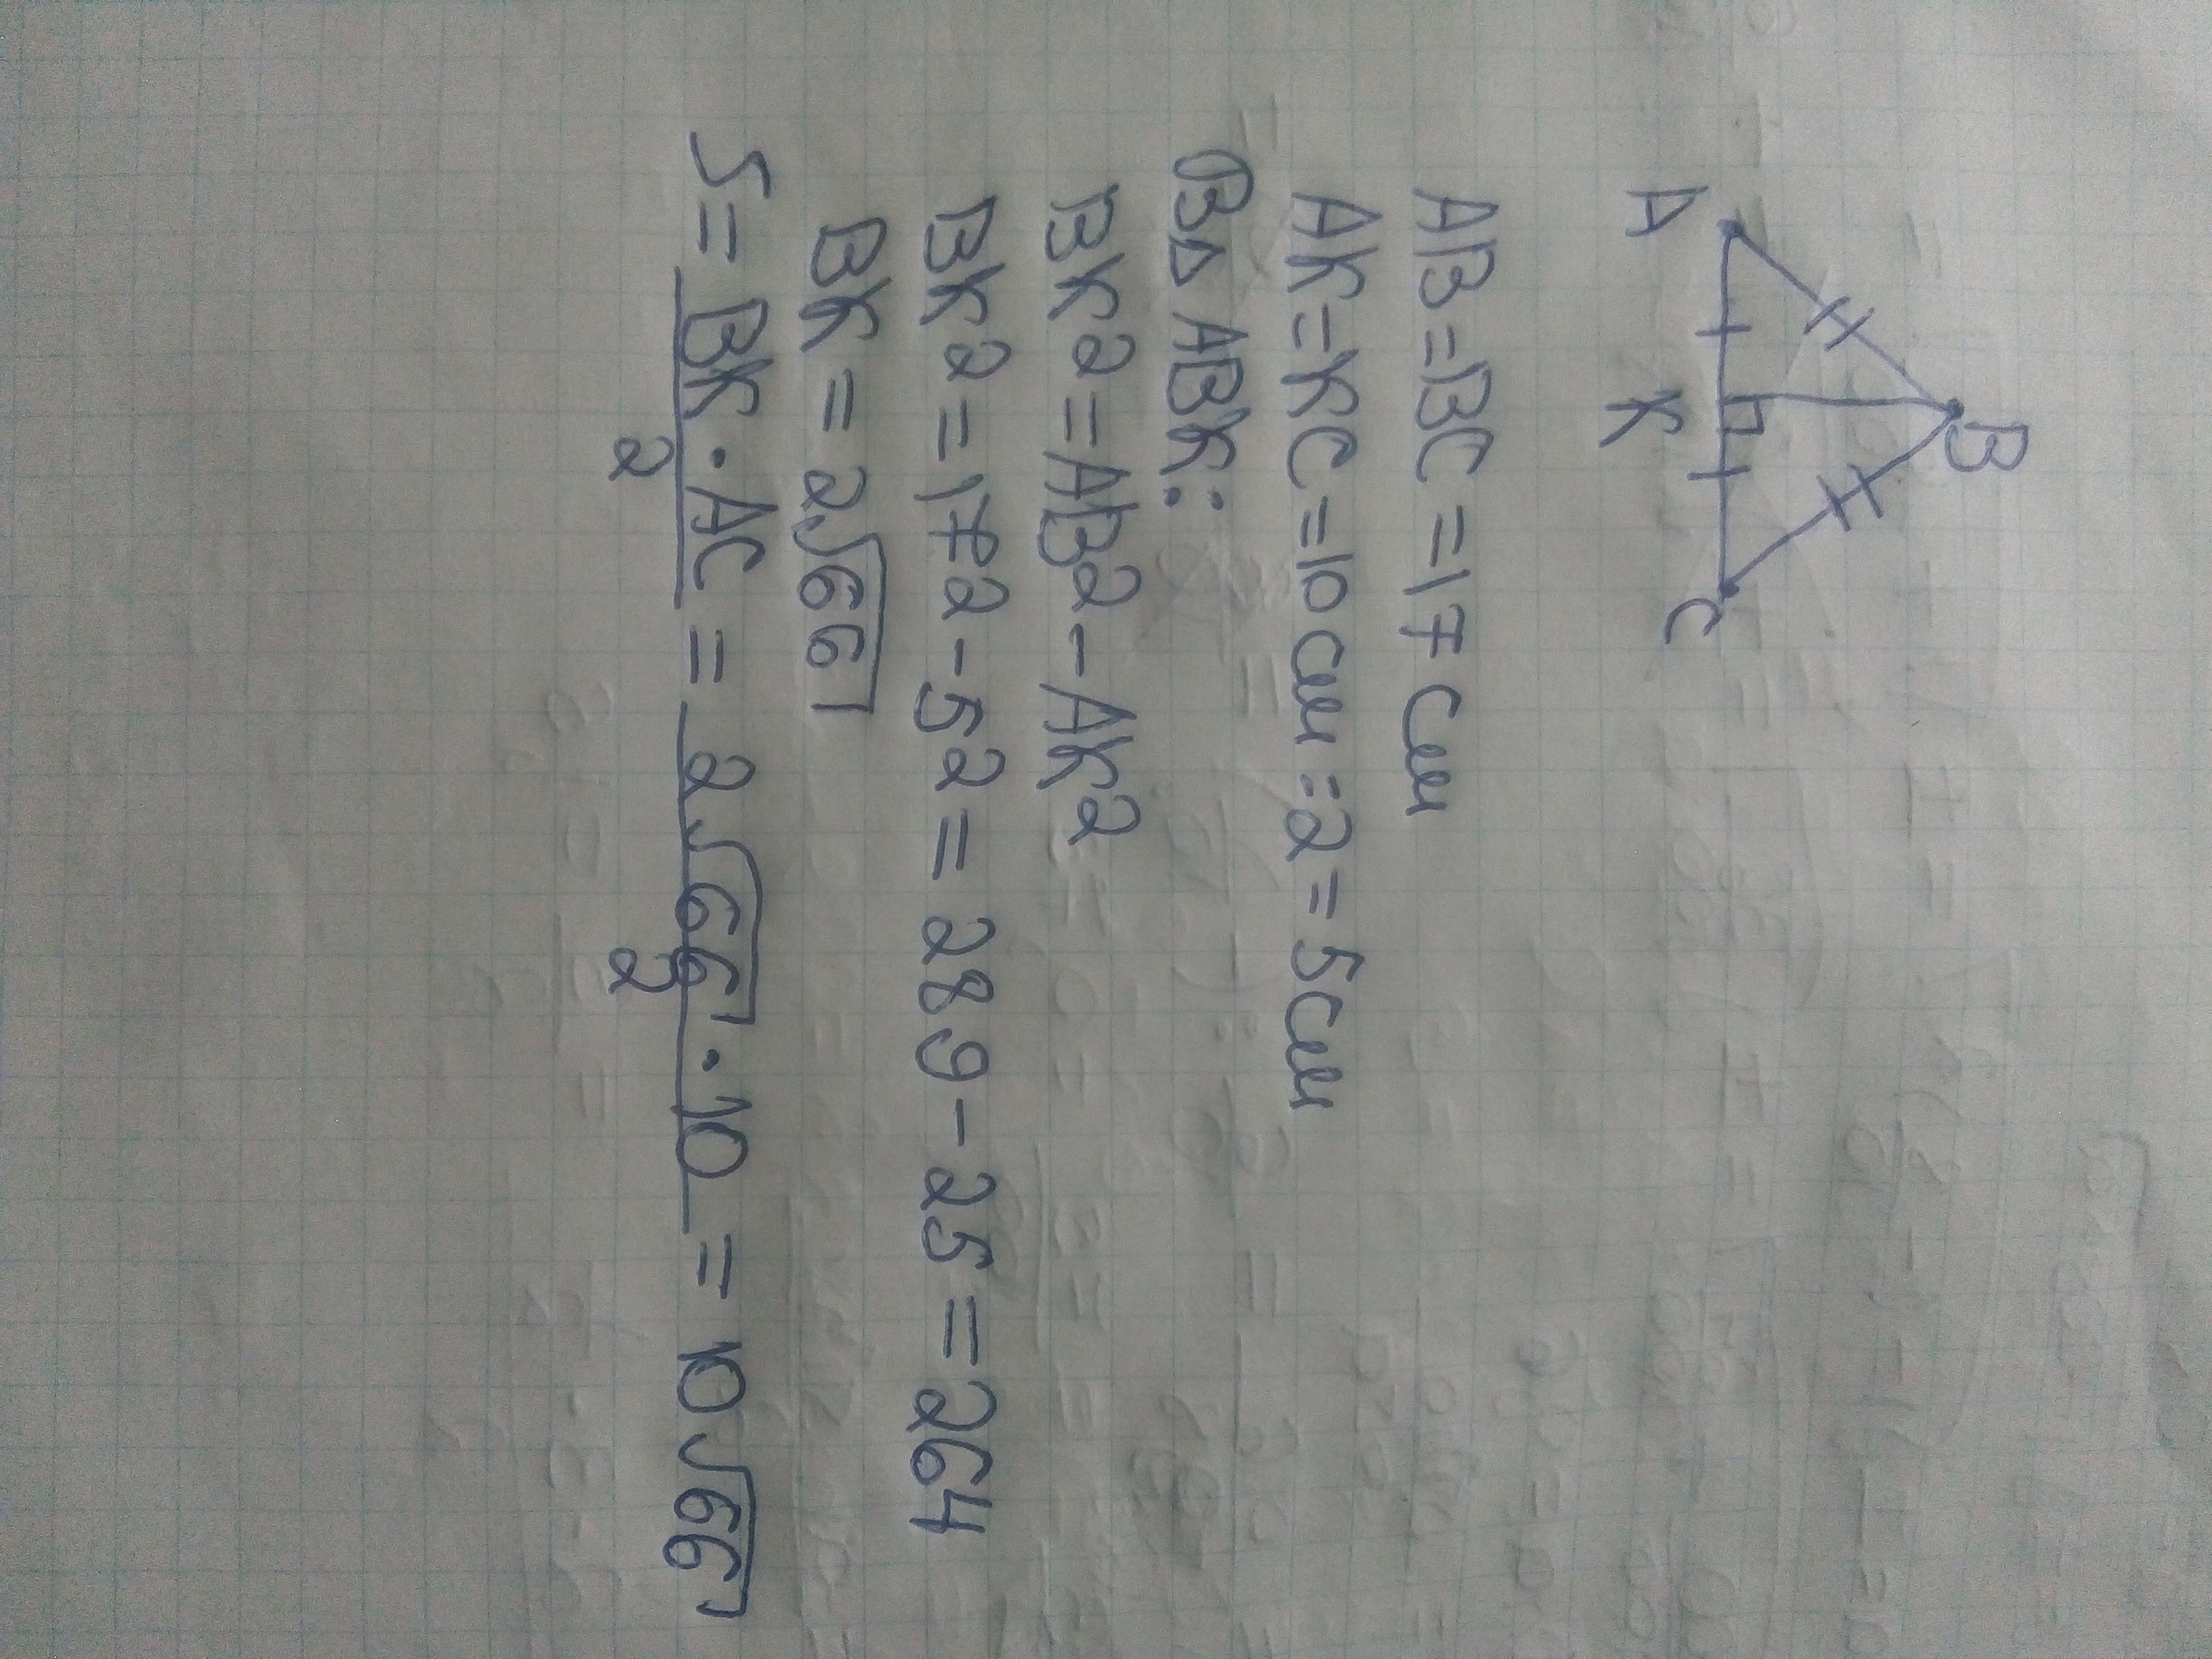 B
A K C
AB=BC=17 см
AK=KC=10 см:2=5см
В△ ABK:
BK²=AB²-AK²
BK²=17²-5²=289-25=264
BK=2√66
S=BK·AC/2=2√66·10/2=10√66